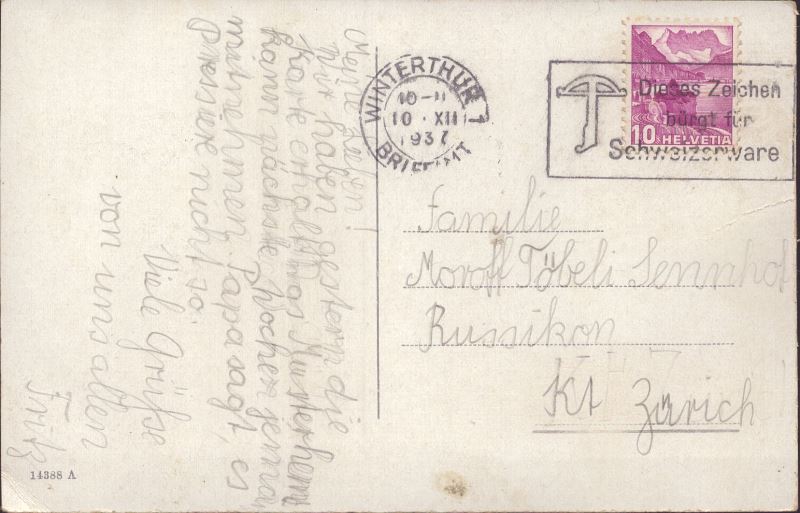 Meine Lieben!
Wir haben gestern die
Karte erhalten. was
kann nächste Woche jemand
mitnehmen. Papa sagt, es
presse nicht so.
Viele Grüsse
von uns allen
Fritz
WINTERTHUR 1
10-11
10 · XII
1937
BRIEFAMT
Dieses Zeichen
bürgt für
Schweizerware
10 HELVETIA
Familie
Moroff Töbeli Sennhof
Russikon
Kt Zürich
14388 A